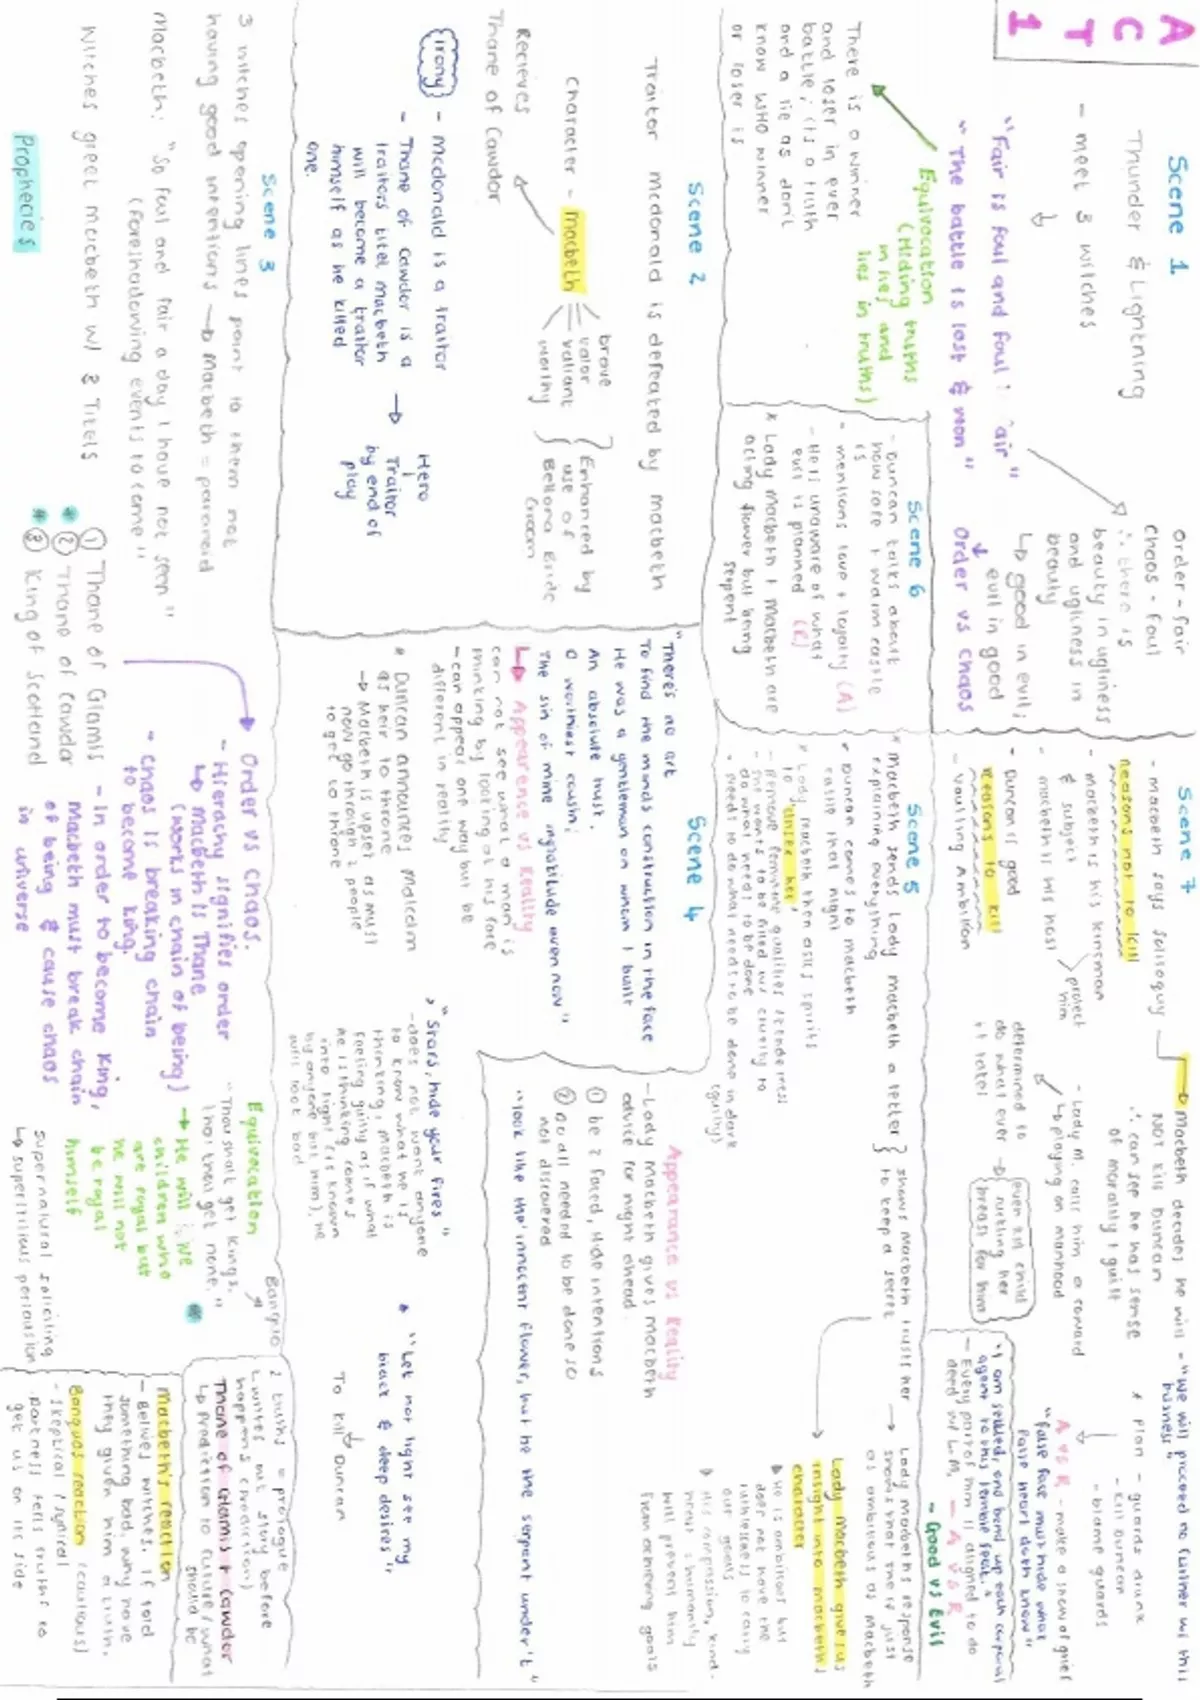 ACT 1
Scene 1.
Thunder & Lightning
- meet 3 witches
"Fair is foul and foul is fair"
"The battle is lost & won"
Equivocation
(Hiding truths
in lies and
lies in truths)
There is a winner
and loser in ever
battle; (is a truth
and a lie as don't
know who winner
or loser is
order - fair
chaos - foul
∴ there is
beauty in ugliness
and ugliness in
beauty
↳ good in evil;
evil in good
Order vs Chaos
Scene 2
Traitor mcdonald is defeated by macbeth
Character - macbeth
brave
valor
valiant
worthy
Enhanced by
use of
Bellona Bride
groom
Recieves
Thane of Cawdor
irony
- mcdonald is a traitor
- Thane of Cawdor is a
traitors titel, macbeth
will become a traitor
himself as he killed
one.
→ Hero
Traitor
by end of
play
Scene 3
3 witches opening lines point to them not
having good intentions → Macbeth = paranoid
Macbeth: "So foul and fair a day I have not seen"
(foreshadowing events to come)"
witches greet macbeth w/ 3 Titels
Prophecies
① Thane of Glamis
* ② Thane of Cawdor
* ③ King of Scotland
Order vs Chaos.
- Hierachy signifies order
↳ Macbeth is Thane
(works in chain of being)
- Chaos is breaking chain
to become king.
- In order to become King,
Macbeth must break chain
of being & cause chaos
in universe
Equivocation
Banquo
"Thou shalt get kings,
thou get none."
→ He will
children who
are royal but
he will not
be royal
himself
supernatural soliciting
↳ superstitious persuasion
2 truths = prologue
happens
Thane of Glamis + Cawdor
↳ Prediction to future / what
should be
Macbeth's reaction
- Belives witches. If told
something bad, why have
they given him a truth.
Banquos reaction (cautious)
- skeptical
darkness tells truths to
get us on its side
Scene 4
"There's no art
To find the minds construction in the face
He was a gentleman on whom I built
An absolute trust.
O worthiest cousin;
The sin of mine ingratitude even now"
↳ Appearence vs Reality
can not see what a man is
thinking by looking at his face
- can appear one way but be
different in reality
* Duncan announces Malcolm
as heir to throne
→ Macbeth is upset as must
now go through 2 people
to get to throne
"Stars, hide your fires"
- does not want anyone
to know what he is
thinking, macbeth is
feeling guilty as if what
he is thinking comes
into light (is known
by anyone but him), he
will look bad
"Let not light see my
black & deep desires"
To kill Duncan
Scene 5
* Macbeth sends Lady macbeth a letter
explaining everything
} shows macbeth trusts her
to keep a secret
→ Lady macbeths response
shows that she is just
as ambitious as macbeth
* Duncan comes to macbeth
castle that night
* Lady macbeth then asks spirits
to "unsex her"
- Remove feminine qualities
she wants to be filled w/ cruelty to
do what need to be done
* needs to do what needs to be done in dark
(guilty)
Lady macbeth give us
insight into macbeths
character
▸ He is ambitious but
does not have the
ruthlessness to carry
our goals
▸ His compassion, kind-
ness & humanity
will prevent him
from achieving goals
Appearance vs Reality
- Lady Macbeth gives macbeth
advice for night ahead
① be 2 faced, hide intentions
② Do all needed to be done so
not discovered
"look like the innocent flower, but be the serpent under't"
Scene 6
- Duncan talks about
how safe + warm castle
is
- mentions love + loyalty (A)
- He is unaware of what
evil is planned (R)
* Lady macbeth + Macbeth are
acting flower but being
serpent
Scene 7
- macbeth says soliloquy
reasons not to kill
- macbeth is his kinsman
& subject
- macbeth is his host
protect
him
- Duncan is good
reasons to kill
- Vaulting Ambition
→ Macbeth decides he will
not kill Duncan
∴ can see he has sense
of morality / guilt
- "we will proceed no further w/ this
business"
- Lady M. calls him a coward
↳ playing on manhood
determined to
do what ever
it takes
* Plan - guards drunk
- kill Duncan
- blame guards
A vs R - make a show of grief
"False face must hide what
false heart doth know"
"I am settled, and bend up each corporal
agent to this terrible feat."
- Every part of him is aligned to do
deed w/ L.M. - A vs R
- Good vs Evil